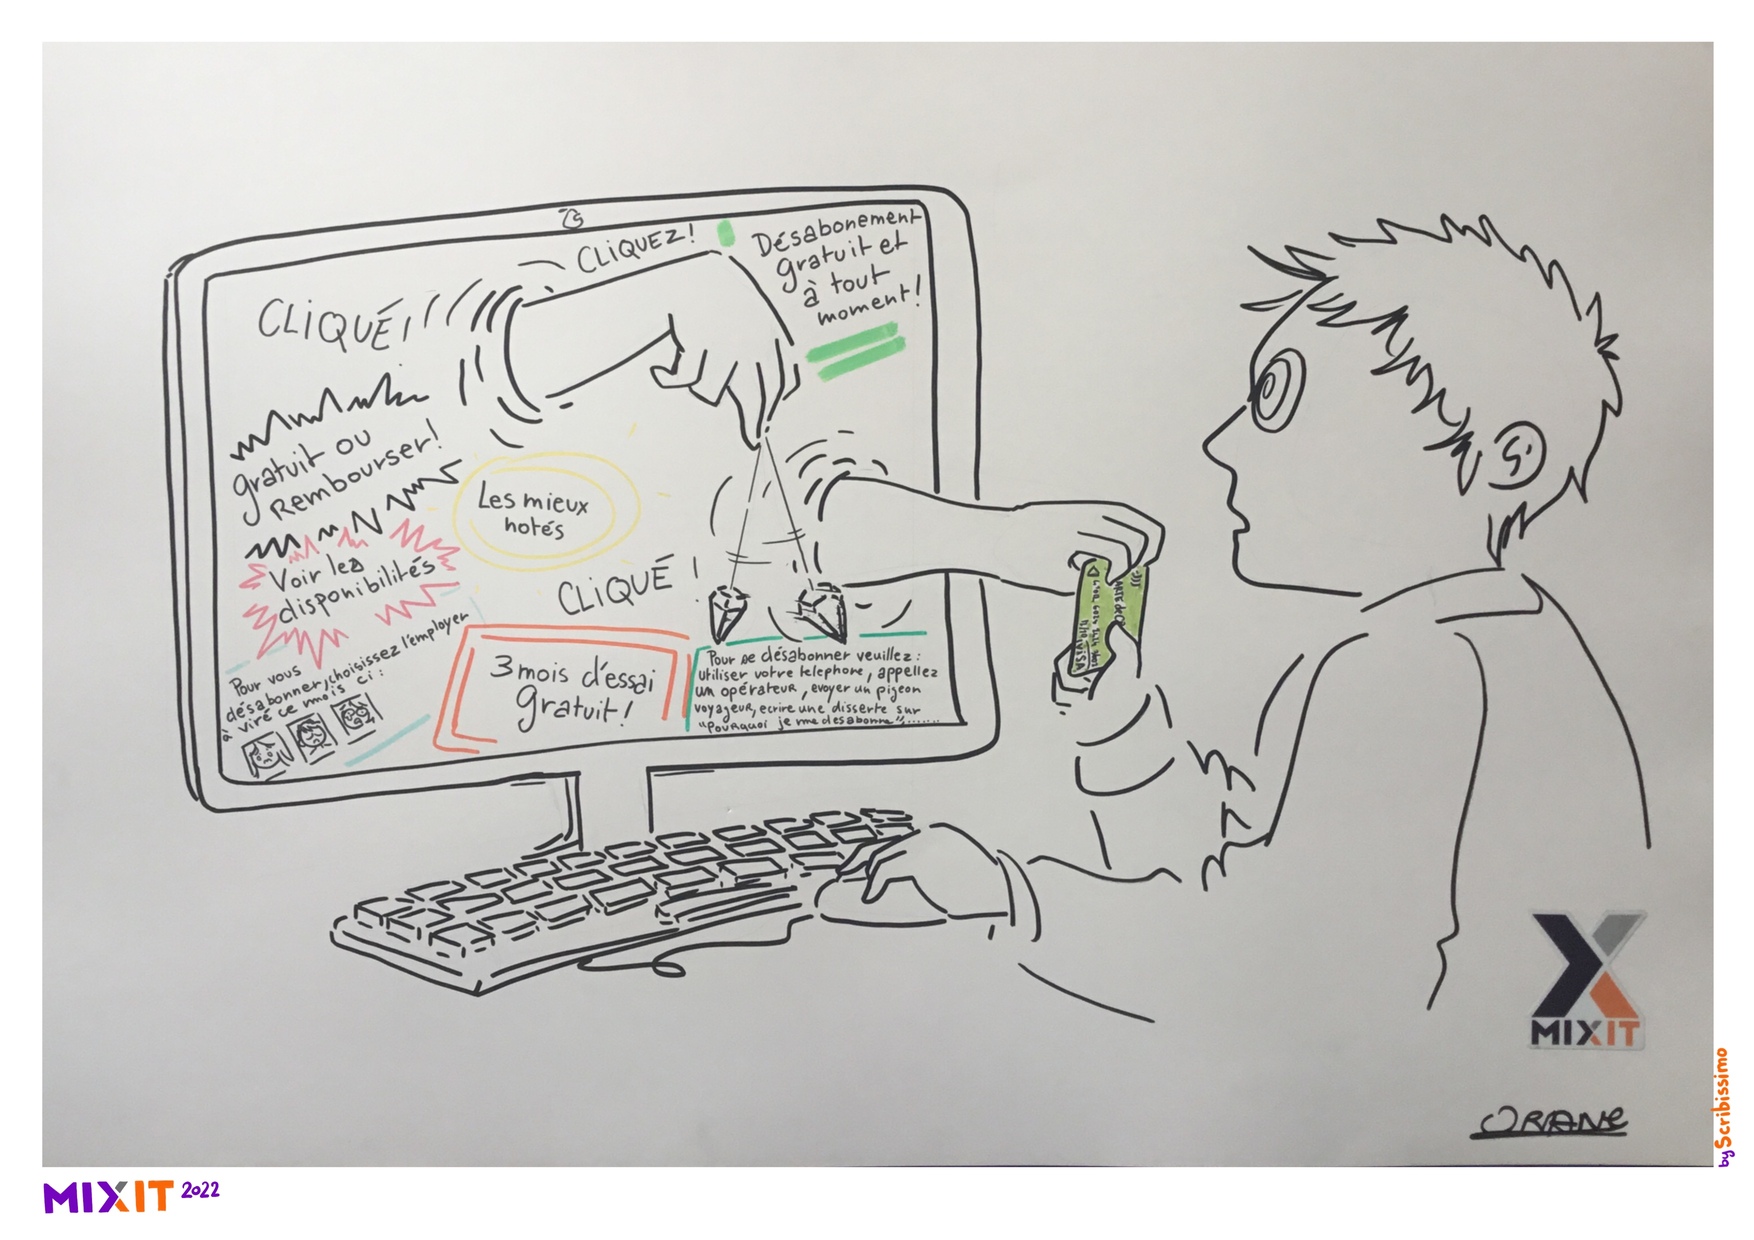 CLIQUEZ!
Désabonement
gratuit et
à tout
moment!
CLIQUÉ!
gratuit ou
Rembourser!
Les mieux
notés
Voir les
disponibilités
CLIQUÉ !
Pour vous
désabonner, choisissez l'employer
à viré ce mois ci :
3 mois d'essai
gratuit!
Pour se désabonner veuillez :
Utiliser votre telephone, appellez
un opérateur, evoyer un pigeon
voyageur, ecrire une disserte sur
"Pourquoi je me désabonne",......
VISA
MIXIT
ORANE
by Scribissimo
MIXIT 2022